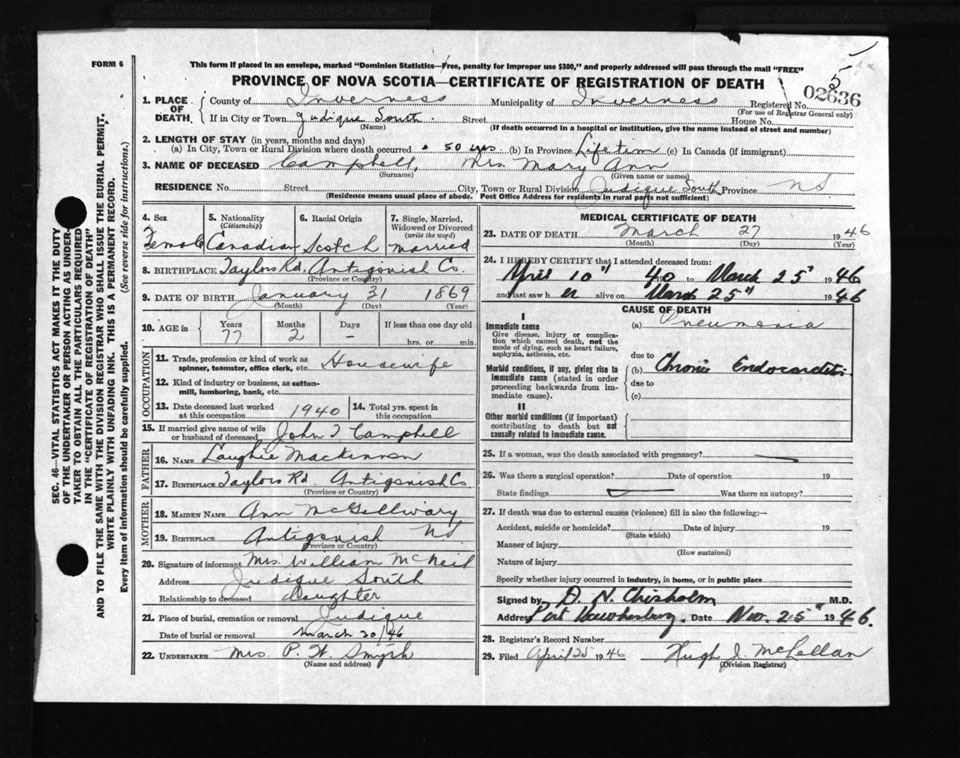 5
5
FORM 6
This form if placed in an envelope, marked "Dominion Statistics—Free, penalty for improper use $300," and properly addressed will pass through the mail "FREE"
PROVINCE OF NOVA SCOTIA—CERTIFICATE OF REGISTRATION OF DEATH
1. PLACE OF DEATH. County of Inverness Municipality of Inverness Registered No. 02636
(For use of Registrar General only)
If in City or Town Judique South Street House No.
(Name) (If death occurred in a hospital or institution, give the name instead of street and number)
2. LENGTH OF STAY (in years, months and days)
(a) In City, Town or Rural Division where death occurred 50 yrs. (b) In Province Lifetime (c) In Canada (if immigrant)
3. NAME OF DECEASED Campbell, Mrs. Mary Ann
(Surname) (Given name or names)
RESIDENCE No. Street City, Town or Rural Division Judique South Province NS
(Residence means usual place of abode. Post Office Address for residents in rural parts not sufficient)
4. Sex 5. Nationality (Citizenship) 6. Racial Origin 7. Single, Married, Widowed or Divorced (write the word)
Female Canadian Scotch Married
8. BIRTHPLACE Taylors Rd. Antigonish Co.
(Province or Country)
9. DATE OF BIRTH January 31 1869
(Month) (Day) (Year)
10. AGE in Years Months Days If less than one day old
77 2 - hrs. or min.
OCCUPATION
11. Trade, profession or kind of work as spinner, teamster, office clerk, etc. Housewife
12. Kind of industry or business, as cotton-mill, lumbering, bank, etc.
13. Date deceased last worked at this occupation 1940 14. Total yrs. spent in this occupation
15. If married give name of wife or husband of deceased John J Campbell
FATHER
16. NAME Laughie MacKinnon
17. BIRTHPLACE Taylors Rd. Antigonish Co
(Province or Country)
MOTHER
18. MAIDEN NAME Ann McGillivary
19. BIRTHPLACE Antigonish NS
(Province or Country)
20. Signature of informant Mrs. William McNeil
Address Judique South
Relationship to deceased daughter
21. Place of burial, cremation or removal Judique
Date of burial or removal March 30/46
22. UNDERTAKER Mrs. P. W. Smyth
(Name and address)
MEDICAL CERTIFICATE OF DEATH
23. DATE OF DEATH March 27 1946
(Month) (Day) (Year)
24. I HEREBY CERTIFY that I attended deceased from:
April 10" 40 to March 25" 1946
and last saw her alive on March 25" 1946
CAUSE OF DEATH
I
Immediate cause (a) Pneumonia
Give disease, injury or complication which caused death, not the mode of dying, such as heart failure, asphyxia, asthenia, etc.
due to
Morbid conditions, if any, giving rise to immediate cause (stated in order proceeding backwards from immediate cause). (b) Chronic Endocarditis
due to
(c)
II
Other morbid conditions (if important) contributing to death but not causally related to immediate cause.
25. If a woman, was the death associated with pregnancy?
26. Was there a surgical operation? Date of operation 19
State findings Was there an autopsy?
27. If death was due to external causes (violence) fill in also the following:—
Accident, suicide or homicide? Date of injury 19
(State which)
Manner of injury
(How sustained)
Nature of injury
Specify whether injury occurred in industry, in home, or in public place
Signed by D. N. Chisholm M.D.
Address Port Hawkesbury. Date Nov. 25" 1946.
28. Registrar's Record Number
29. Filed April 25 1946 Hugh J. McLellan
(Division Registrar)
SEC. 46—VITAL STATISTICS ACT MAKES IT THE DUTY
OF THE UNDERTAKER OR PERSON ACTING AS UNDER-
TAKER TO OBTAIN ALL THE PARTICULARS REQUIRED
IN THE "CERTIFICATE OF REGISTRATION OF DEATH"
AND TO FILE THE SAME WITH THE DIVISION REGISTRAR WHO SHALL ISSUE THE BURIAL PERMIT.
WRITE PLAINLY WITH UNFADING INK. THIS IS A PERMANENT RECORD.
Every item of information should be carefully supplied. (See reverse side for instructions.)